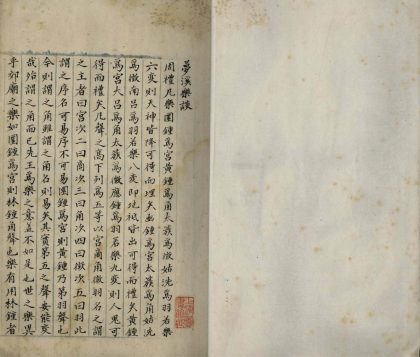 夢溪樂談
周禮凡樂圜鍾為宮黃鍾為角太蔟為徵姑洗為羽若樂
六變則天神皆降可得而禮矣函鍾為宮太蔟為角姑洗
為徵南呂為羽若樂八變即地祇皆出可得而禮矣黃鍾
為宮大呂為角太蔟為徵應鍾為羽若樂九變則人鬼可
得而禮矣凡聲之高下列為五等以宮商角徵羽名之謂
之主者曰宮次二曰商次三曰角次四曰徵次五曰羽此
謂之序名可易序不可易圜鍾為宮則黃鍾乃第羽聲也
今則謂之角雖謂之角名則易矣其實第五之聲安能變
哉殆謂之角而已先王為樂之意蓋不如是也世之樂異
乎郊廟之樂如圜鍾為宮則林鍾角聲也樂有用林鍾者